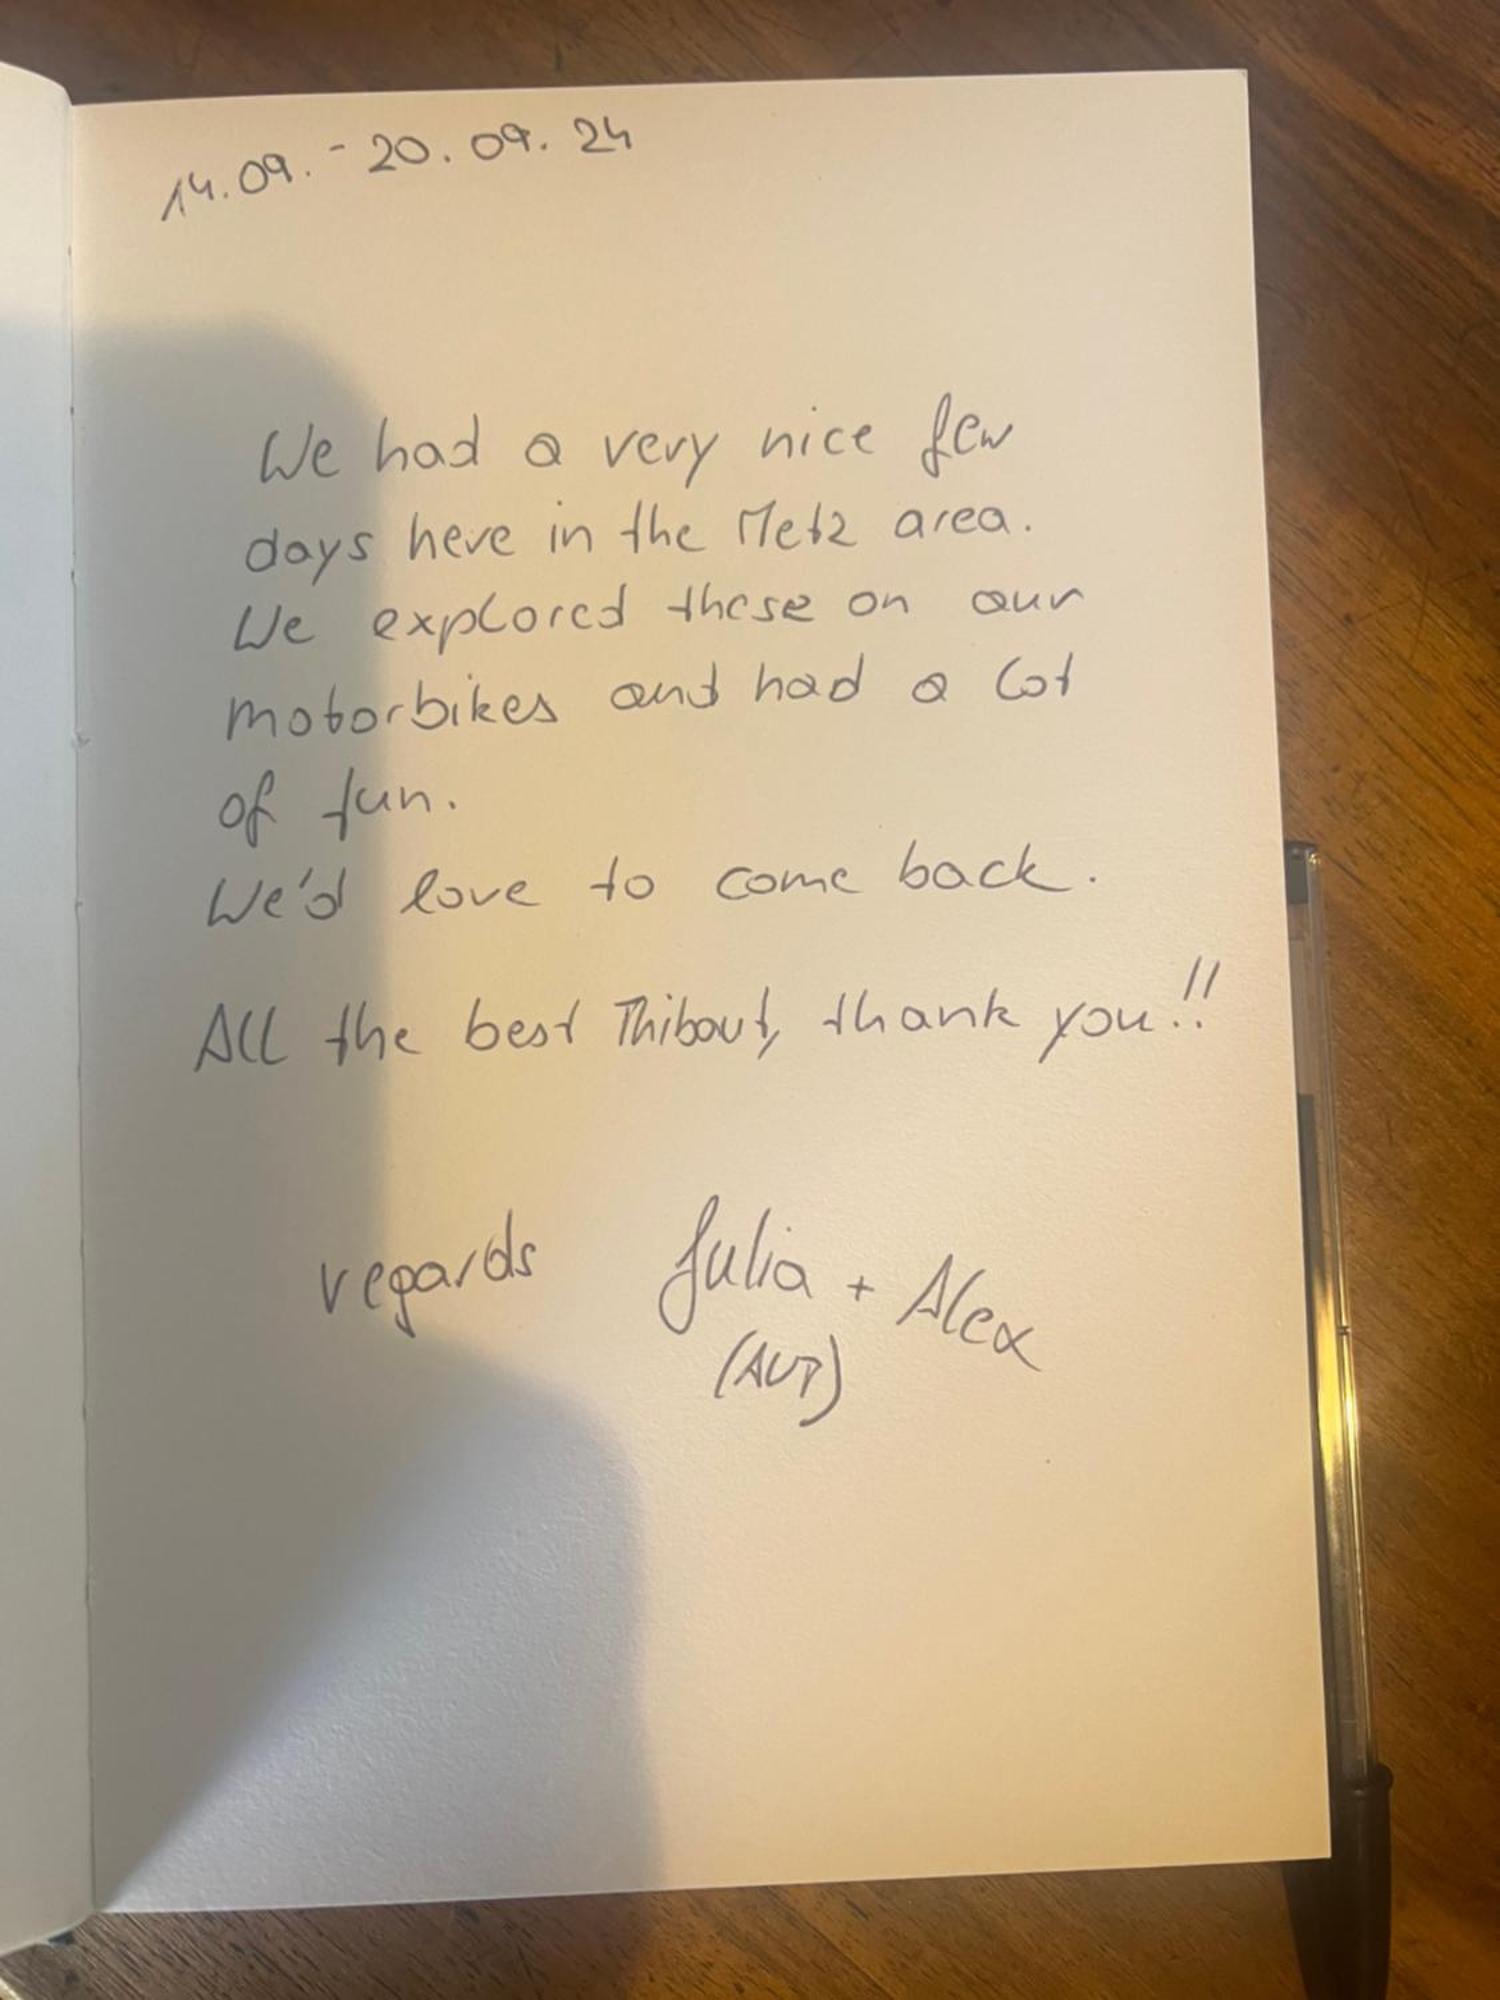 14.09. - 20.09.24
We had a very nice few
days here in the Metz area.
We explored these on our
motorbikes and had a lot
of fun.
We'd love to come back.
All the best Thibaut, thank you!!
regards Julia + Alex
(AUT)